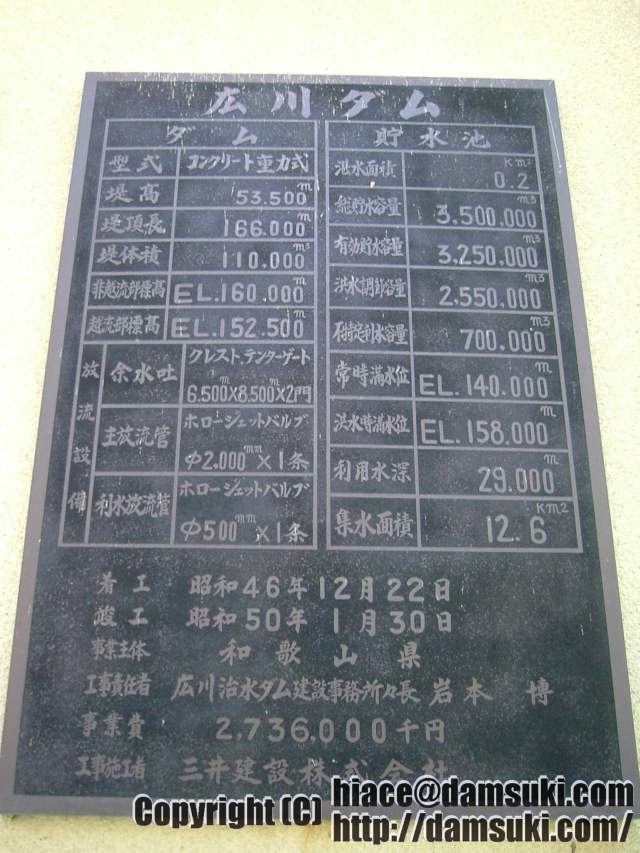 広川ダム
ダム
型式 コンクリート重力式
堤高 53.500m
堤頂長 166.000m
堤体積 110.000m³
非越流部標高 EL.160.000m
越流部標高 EL.152.500m
放流設備
余水吐 クレストテンターゲート
6.500m×8.500m×2門
主放流管 ホロージェットバルブ
φ2.000mm×1条
利水放流管 ホロージェットバルブ
φ500mm×1条
貯水池
湛水面積 0.2km²
総貯水容量 3.500.000m³
有効貯水容量 3.250.000m³
洪水調節容量 2.550.000m³
不特定利水容量 700.000m³
常時満水位 EL.140.000m
洪水時満水位 EL.158.000m
利用水深 29.000m
集水面積 12.6km²
着工 昭和46年12月22日
竣工 昭和50年1月30日
事業主体 和歌山県
工事責任者 広川治水ダム建設事務所々長 岩本 博
事業費 2.736.000千円
工事施工者 三井建設株式会社
Copyright (C) hiace@damsuki.com
http://damsuki.com/